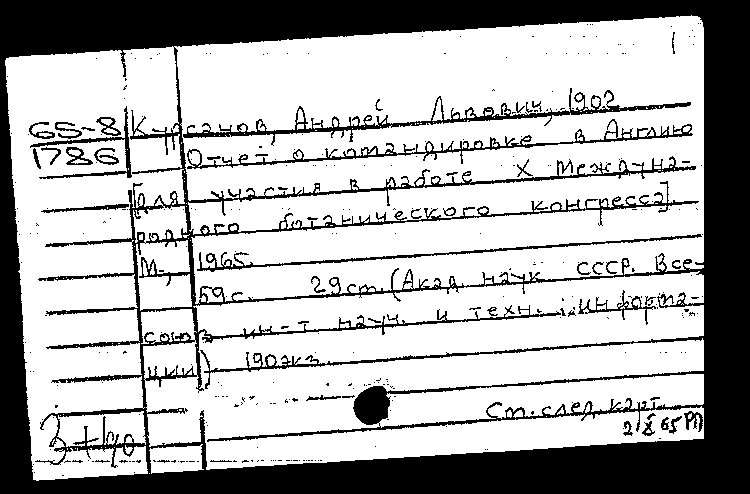 1
65-8 Курсанов, Андрей Львович, 1902
1786 Отчет о командировке в Англию
[для участия в работе X Междуна-
родного ботанического конгресса].
М., 1965.
59 с. 29 см. (Акад. наук СССР. Все-
союз ин-т науч. и техн. информа-
ции) 190 экз.
См. след. карт.
2 X 65 РП